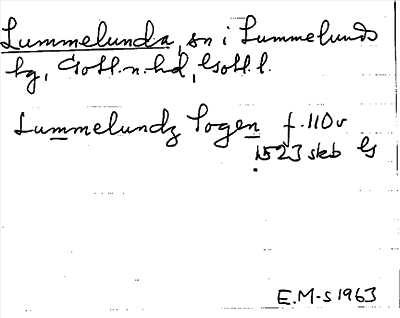 Lummelunda, sn i Lummelunds
tg, Gotl.n.hd, Gotl.l.
Lummelundz Sogen f.110v
1523 skb Gs
E.M-S 1963